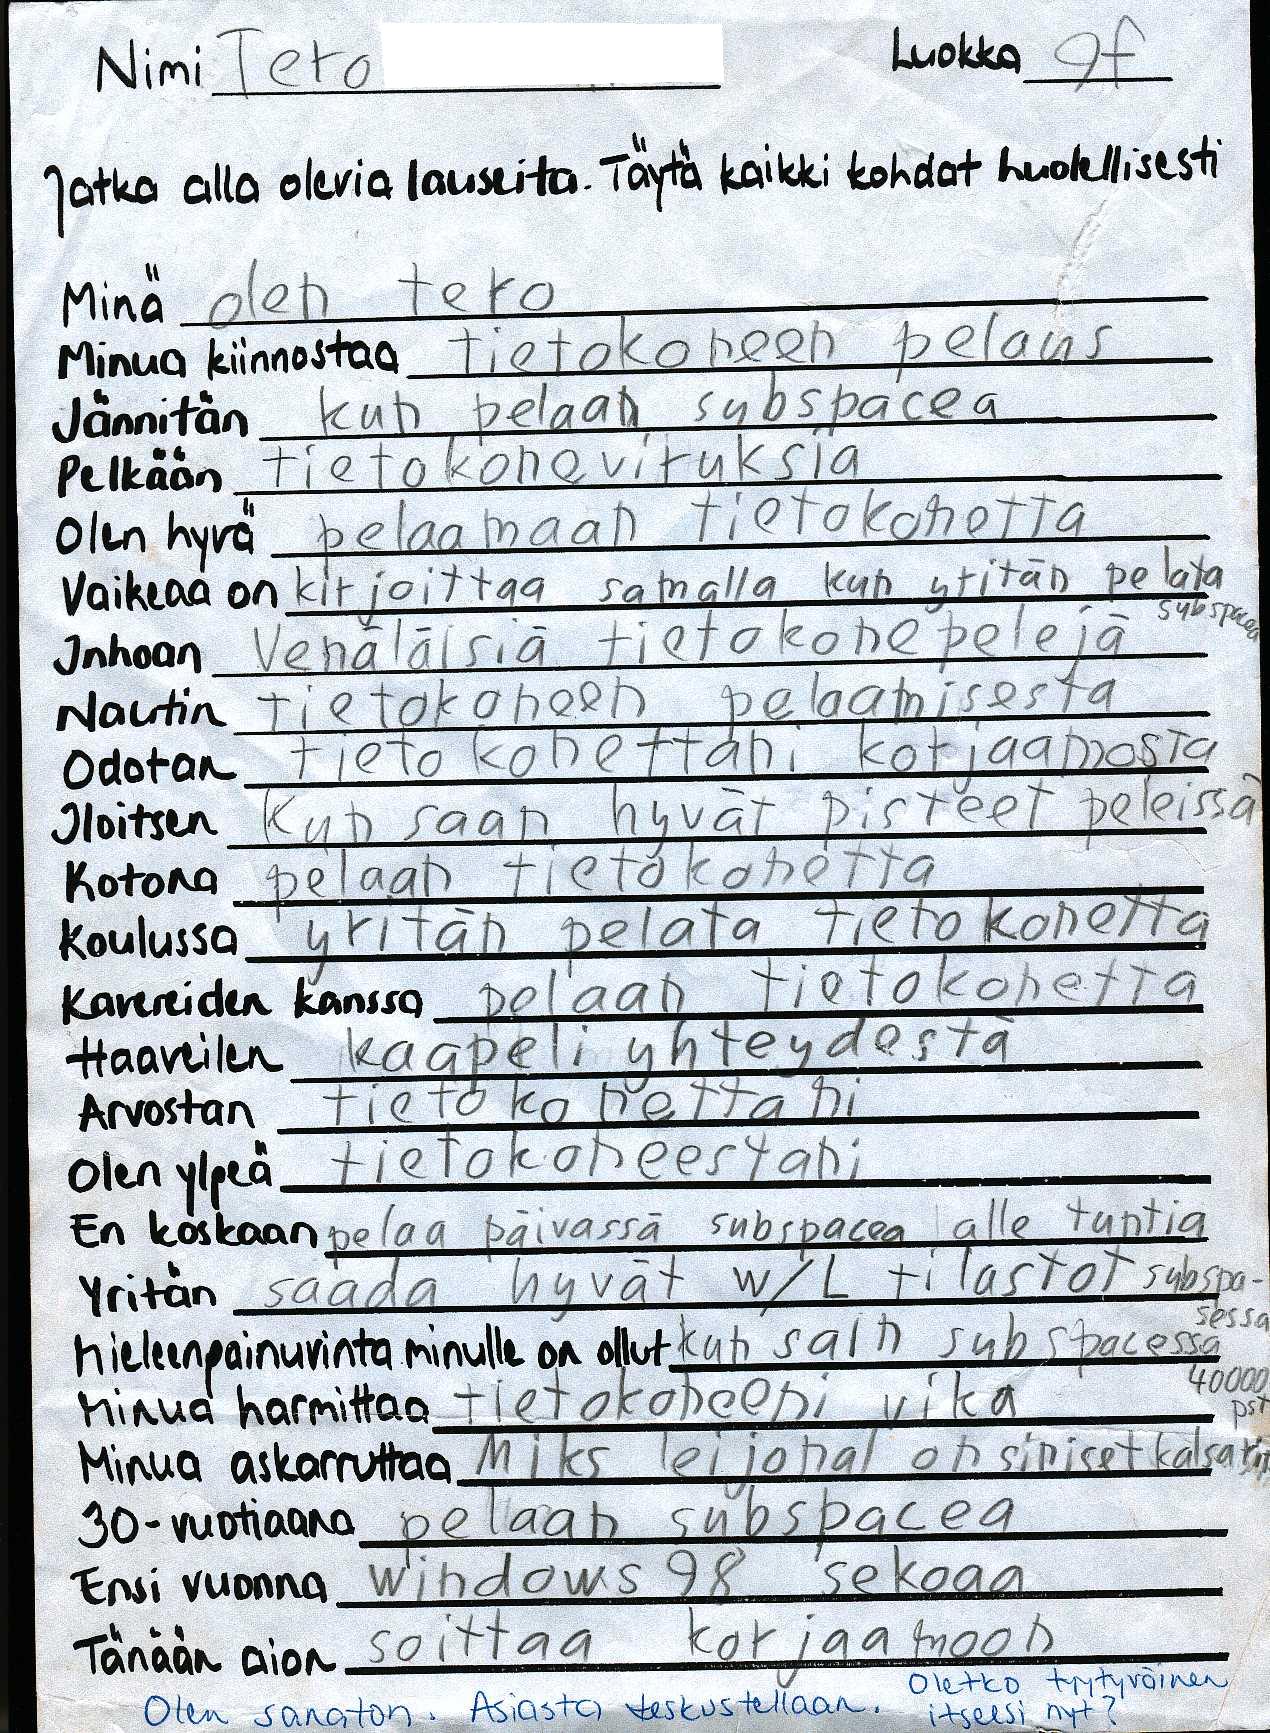 Nimi Tero
Luokka 9f
Jatka alla olevia lauseita. Täytä kaikki kohdat huolellisesti
Minä olen tero
Minua kiinnostaa tietokoneen pelaus
Jännitän kun pelaan subspacea
Pelkään tietokoneviruksia
Olen hyvä pelaamaan tietokonetta
Vaikeaa on kirjoittaa samalla kun yritän pelata
subspacea
Inhoan Venäläisiä tietokonepelejä
Nautin tietokoneen pelaamisesta
Odotan tietokonettani korjaamosta
Iloitsen kun saan hyvät pisteet peleissä
Kotona pelaan tietokonetta
Koulussa yritän pelata tietokonetta
Kavereiden kanssa pelaan tietokonetta
Haaveilen kaapeli yhteydestä
Arvostan tietokonettani
Olen ylpeä tietokoneestani
En koskaan pelaa päivässä subspacea alle tuntia
Yritän saada hyvät w/L tilastot subspa-
sessa
Mieleenpainuvinta minulle on ollut kun sain subspacessa
40000
pst
Minua harmittaa tietokoneeni vika
Minua askarruttaa Miks leijonal on siniset kalsarit
30-vuotiaana pelaan subspacea
Ensi vuonna windows 98 sekoaa
Tänään aion soittaa korjaamoon
Olen sanaton. Asiasta keskustellaan. Oletko tyytyväinen
itseesi nyt?